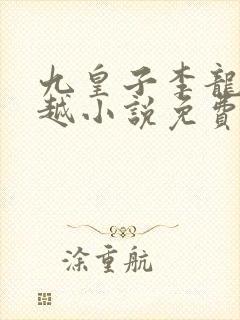 九皇子李龍
越小說免費
涂重航